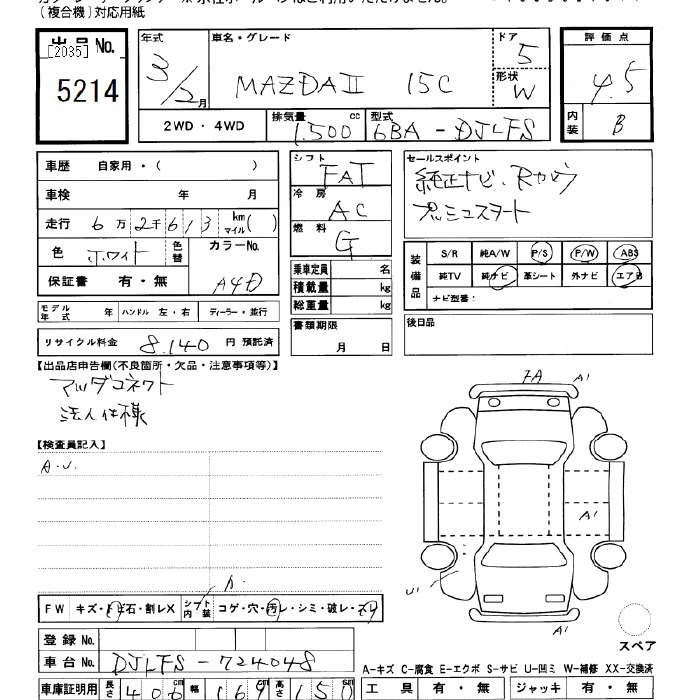 (複合機)対応用紙
出品 No.
[2035]
5214
年式
3/2月
車名・グレード
MAZDAⅡ 15C
ドア
5
形状
W
評価点
4.5
内装
B
2WD・4WD
排気量 cc
1,500
型式
6BA-DJLFS
車歴 自家用・( )
車検 年 月
走行 6万2千613 km マイル( )
色 ホワイト 色替
カラーNo.
A4D
保証書 有・無
シフト
FAT
冷房
AC
燃料
G
乗車定員 名
積載量 kg
総重量 kg
セールスポイント
純正ナビ、Rカメラ
プッシュスタート
装備品
S/R 純A/W P/S P/W ABS
純TV 純ナビ 革シート 外ナビ エアB
ナビ型番:
モデル年式 年 ハンドル 左・右 ディーラー・並行
リサイクル料金 8,140 円 預託済
書類期限
月 日
後日品
【出品店申告欄(不良箇所・欠品・注意事項等)】
マツダコネクト
法人仕様
【検査員記入】
A.U.
FA
A1
A1
U1
A1
A.
FW キズ・トビ石・割レX シフト内装 コゲ・穴・汚レ・シミ・破レ・スリ
スペア
登録 No.
車台 No. DJLFS-724048
A-キズ C-腐食 E-エクボ S-サビ U-凹ミ W-補修 XX-交換済
車庫証明用 長さ 406 cm 幅 169 cm 高さ 150 cm
工具 有・無 ジャッキ 有・無